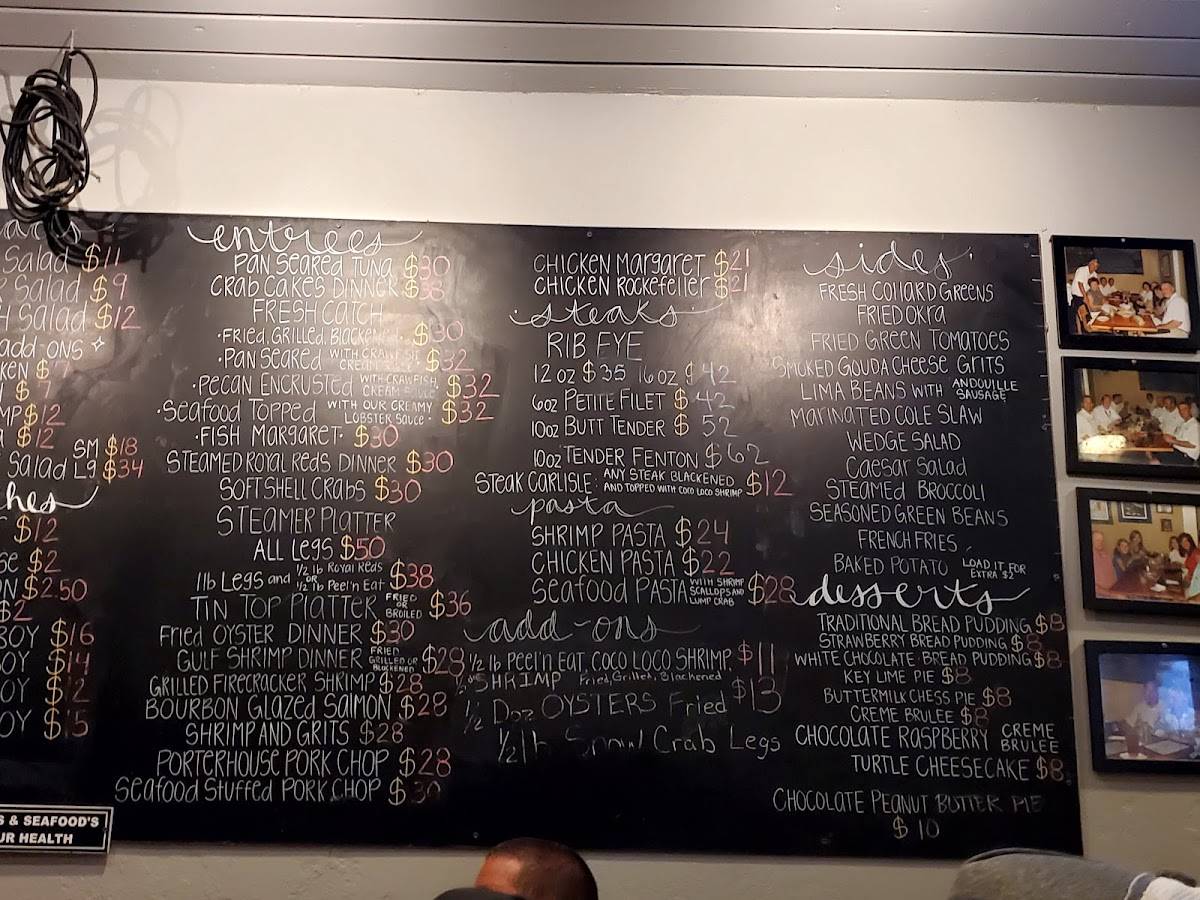 Salad $11
Salad $9
Salad $12
add-ons
$12
$12
SM $18
Salad Lg $34
$12
$2
$2.50
$2
BOY $16
$14
$12
$15
S & SEAFOOD'S
UR HEALTH
entrees
Pan Seared Tuna $30
Crab Cakes Dinner $38
Fresh Catch
·Fried, Grilled, $30
·Pan Seared with $32
·Pecan Encrusted with crawfish $32
·Seafood Topped with our creamy
lobster sauce · $32
·Fish Margaret· $30
Steamed Royal Reds Dinner $30
Soft Shell Crabs $30
Steamer Platter
All Legs $50
1lb Legs and 1/2 lb Royal Reds
or
1/2 lb Peel'n Eat $38
Tin Top Platter Fried
or
Broiled $36
Fried Oyster Dinner $30
Gulf Shrimp Dinner Fried
Grilled or
Blackened $28
Grilled Firecracker Shrimp $28
Bourbon Glazed Salmon $28
Shrimp and Grits $28
Porterhouse Pork Chop $28
Seafood Stuffed Pork Chop $30
Chicken Margaret $21
Chicken Rockefeller $21
·steaks
Rib Eye
12 oz $35 16 oz $42
6oz Petite Filet $42
10oz Butt Tender $52
10oz Tender Fenton $62
Steak Carlisle: Any steak blackened
and topped with coco loco shrimp $12
pasta
Shrimp Pasta $24
Chicken Pasta $22
Seafood Pasta with shrimp
scallops and
lump crab $28
add-ons
1/2 lb Peel'n Eat, Coco Loco Shrimp, $11
Shrimp Fried, Grilled, Blackened
1/2 Doz Oysters Fried $13
1/2 lb Snow Crab Legs
sides
Fresh Collard Greens
Fried Okra
Fried Green Tomatoes
Smoked Gouda Cheese Grits
Lima Beans with Andouille
Sausage
Marinated Cole Slaw
Wedge Salad
Caesar Salad
Steamed Broccoli
Seasoned Green Beans
French Fries
Baked Potato Load it for
extra $2
desserts
Traditional Bread Pudding $8
Strawberry Bread Pudding $8
White Chocolate Bread Pudding $8
Key Lime Pie $8
Buttermilk Chess Pie $8
Creme Brulee $8
Chocolate Raspberry Creme
Brulee
Turtle Cheesecake $8
Chocolate Peanut Butter Pie
$10